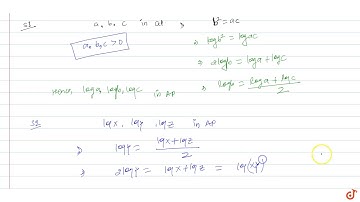 Sol. a, b, c in GP ⇒ b² = ac
a, b, c > 0 ⇒ log b² = log ac
⇒ 2 log b = log a + log c
Hence log a, log b, log c in AP ⇒ log b = (log a + log c)/2
log x, log y, log z in AP
⇒ log y = (log x + log z)/2
⇒ 2 log y = log x + log z = log(xz)